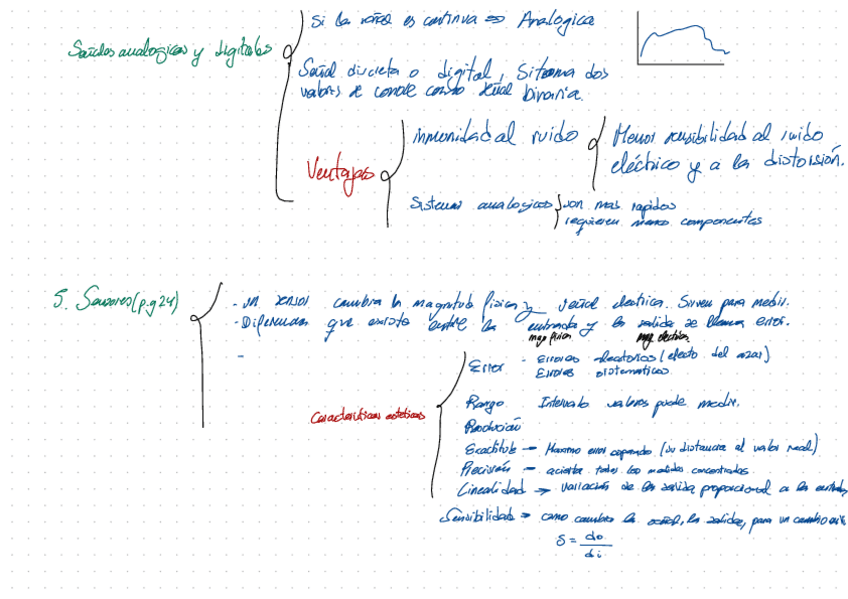 Si la señal es continua => Analogica
Salidas analogicas y digitales
Señal discreta o digital, Si toma dos
valores se conoce como señal binaria.
Ventajas
inmunidad al ruido
Menor sensibilidad al ruido
eléctrico y a la distorsión.
Sistemas analogicos
son mas rapidos
requieren menos componentes
5. Sensores (p.g 24)
- un sensor cambia la magnitud fisica y señal electrica. Sirven para medir.
- Diferencias que existe entre la entrada y la salida se llama error.
mag fisica
mag electrica
-
Caracteristicas estaticas
Error - Errores aleatorios (efecto del azar)
Errores sistematicos
Rango Intervalo valores puede medir.
Exactitud → Maximo error esperado (su distancia al valor real)
Precisión → acierta todas las medidas concentradas
Linealidad → variación de la salida proporcional a la entrada
Sensibilidad → como cambia la señal, la salida, para un cambio
S = do
di